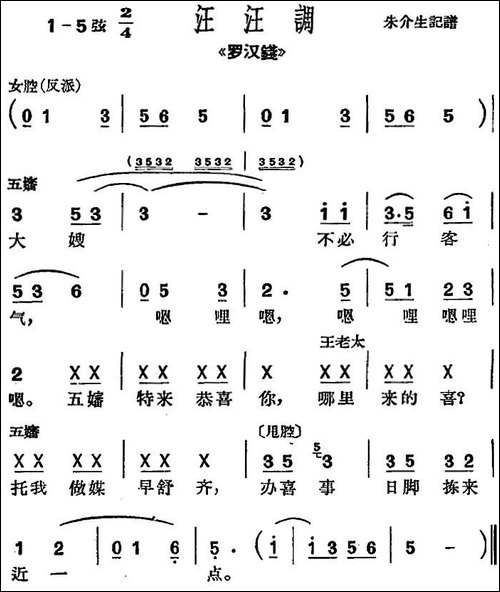 1-5弦 2/4 汪汪調 朱介生記譜
《罗汉錢》
女腔(反派)
( 0 1 3 | 5 6 5 | 0 1 3 | 5 6 5 )
(3532 3532 | 3532)
五嬸
3 5 3 | 3 - | 3 i i | 3·5 6 i |
大 嫂 不必 行 客
5 3 6 | 0 5 3 | 2· 5 | 5 1 2 3 |
气, 嗯 哩 嗯, 嗯 哩 嗯哩
王老太
2 X X | X X X X | X X X | X X X |
嗯。 五嬸 特来 恭喜 你, 哪里 来的 喜?
五嬸 〔甩腔〕
X X X X | X X X | 3 5 5 3 | 3 5 3 2 |
托我 做媒 早舒 齐, 办喜 事 日脚 拣来
1 2 | 0 1 6 | 5· ( i | i 3 5 6 | 5 - ) ‖
近 一 点。